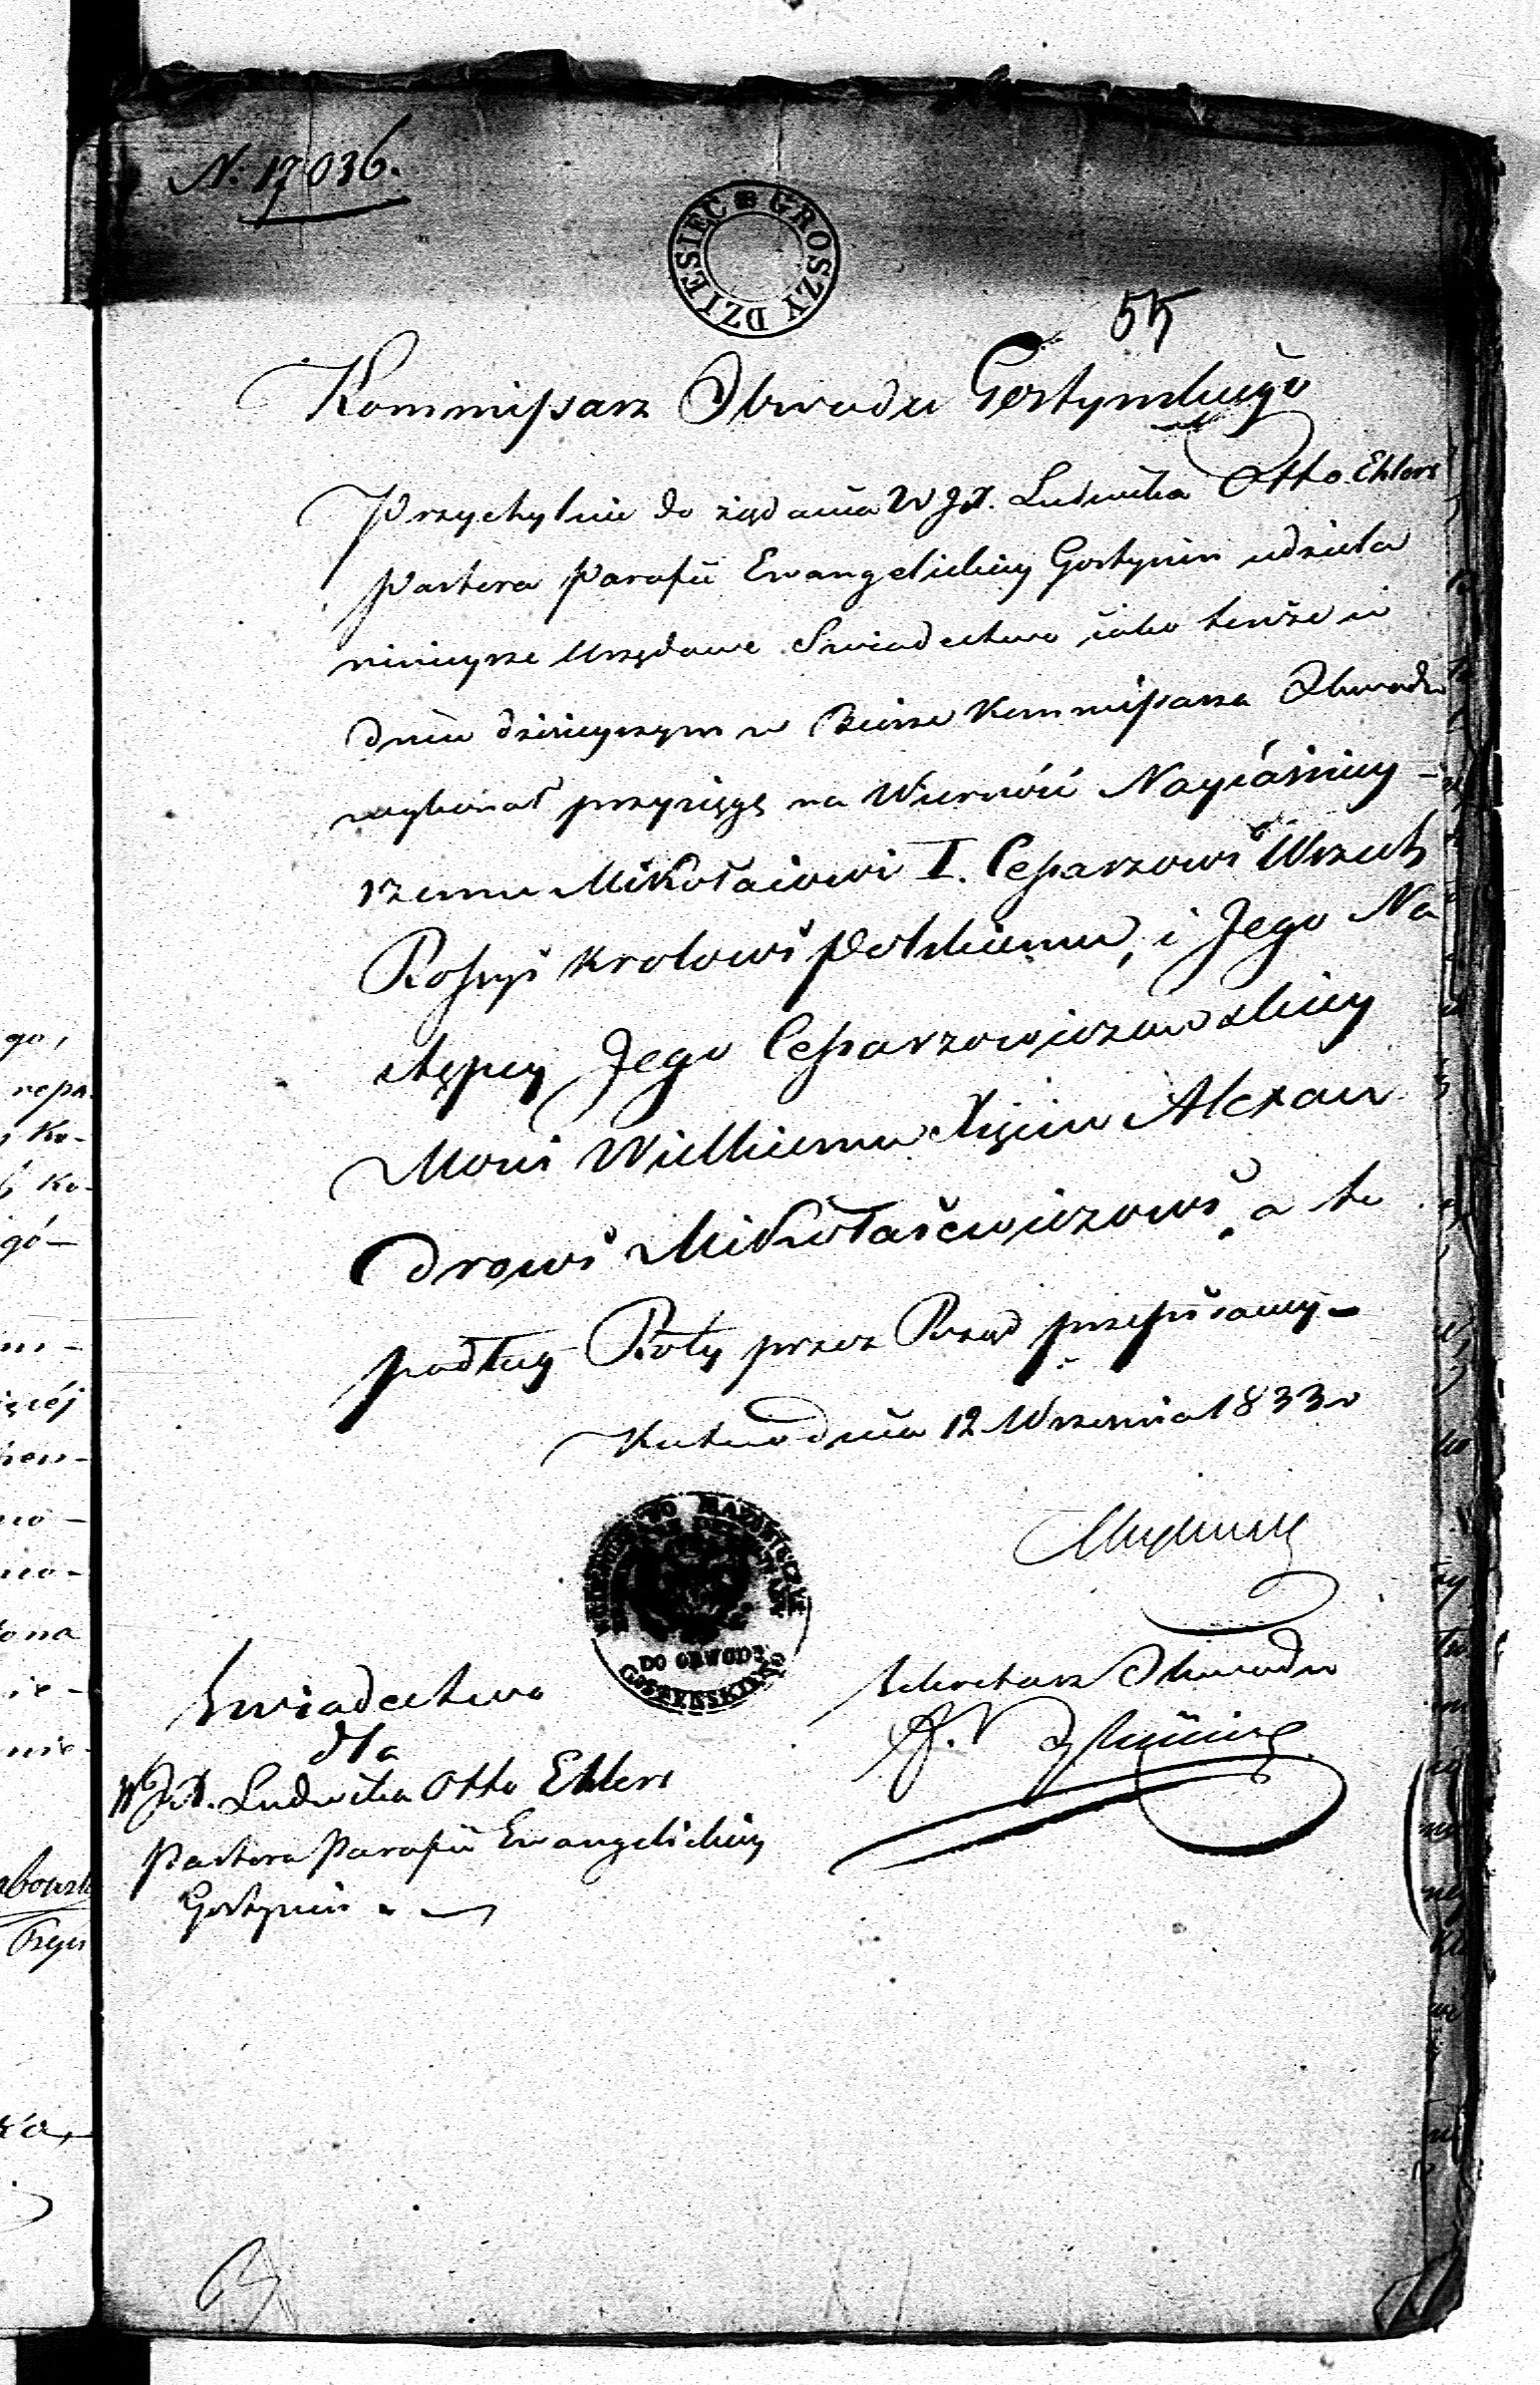 N. 17036.
DZIESIĘC GROSZY
55
Kommissarz Obwodu Gostynskiego
Przychylnie do żądania W JX. Ludwika Otto Ehlers
Pastora Parafii Ewangelickiey Gostynin udziela
ninieysze Urzędowe Swiadectwo iako tenże w
dniu dzisieyszym w Biurze Kommissarza Obwodu
wykonał przysięgę na Wierność Nayiaśniey-
szemu Mikołaiowi I. Cesarzowi Wszech
Rossyi Krolowi Polskiemu, i Jego Na
stępcy Jego Cesarzowiczowskiey
Mości Wielkiemu Xięciu Alexan
drowi Mikołaiewiczowi, a to
podług Roty przez Rząd przepisaney-
Kutno dnia 12 Września 1833 r
WOJEWODZTWO MAZOWIECKIE
DO OBWODU
GOSTYNSKIEGO
Sekretarz Obwodu
Swiadectwo
dla
W JX. Ludwika Otto Ehlers
Pastora Parafii Ewangelickiey
Gostynin